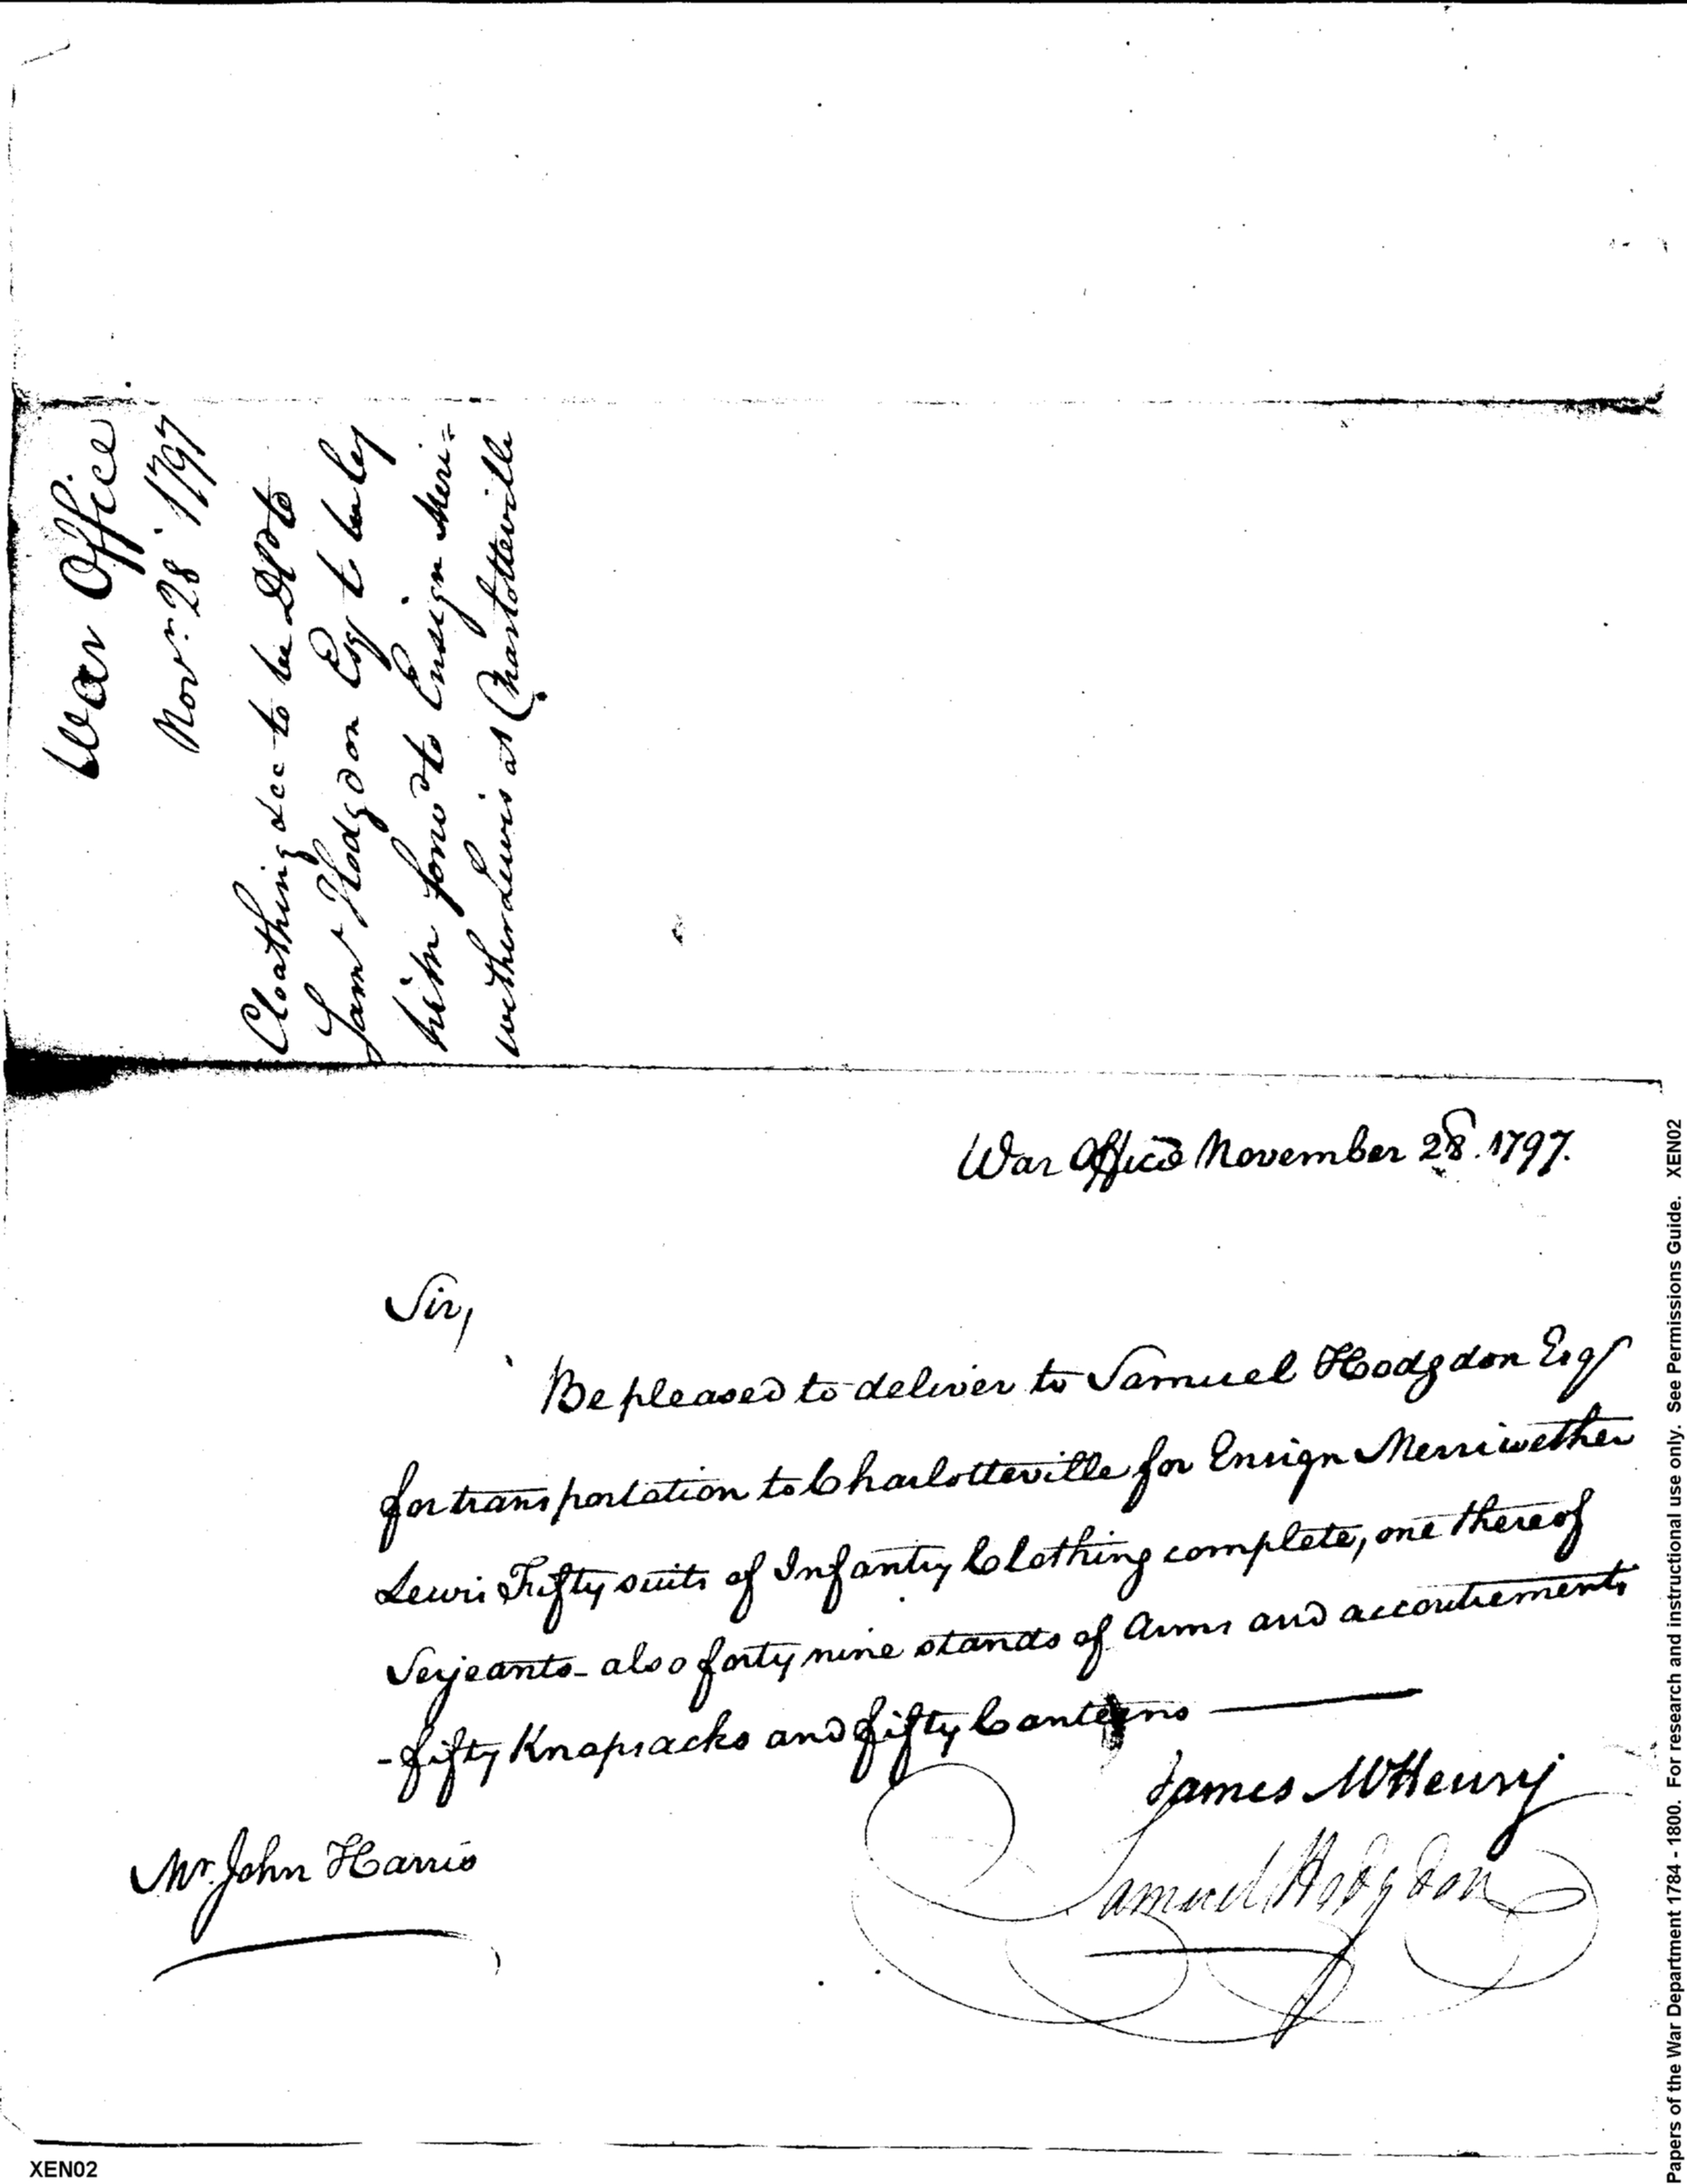 War Office
Novr. 28 1797
Cloathing &c to be Dld to
Saml Hodgdon Esqr to be by
him forwd to Ensign Meri=
wether Lewis at Charlotteville
War Office November 28. 1797.
Sir,
Be pleased to deliver to Samuel Hodgdon Esqr
for transportation to Charlotteville for Ensign Merriwether
Lewis Fifty suits of Infantry Clothing complete, one thereof
Serjeants - also forty nine stands of Arms and accoutrements
- fifty Knapsacks and fifty Canteens
James McHenry
Samuel Hodgdon
Mr. John Harris
Papers of the War Department 1784 - 1800. For research and instructional use only. See Permissions Guide. XEN02
XEN02